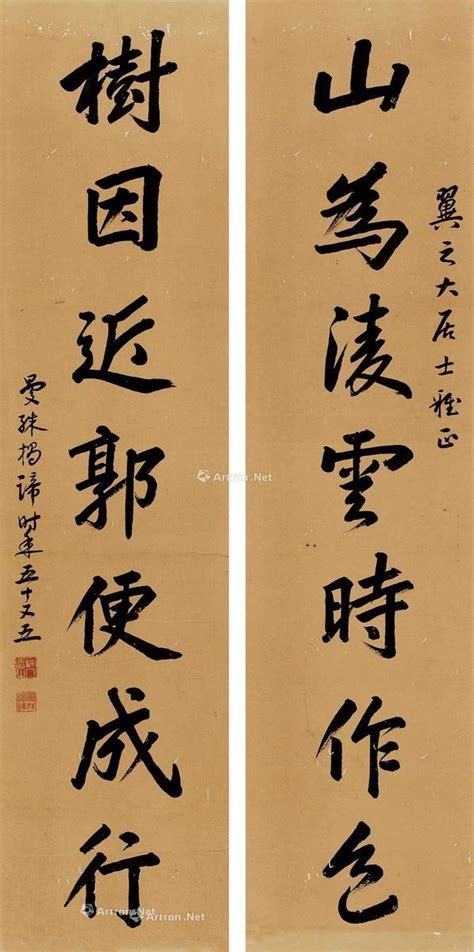 翼之大居士雅正
山為淩雲時作色
樹因近郭便成行
曼殊揭諦時年五十又五
Artron.Net
Artron.Net
Artron.Net